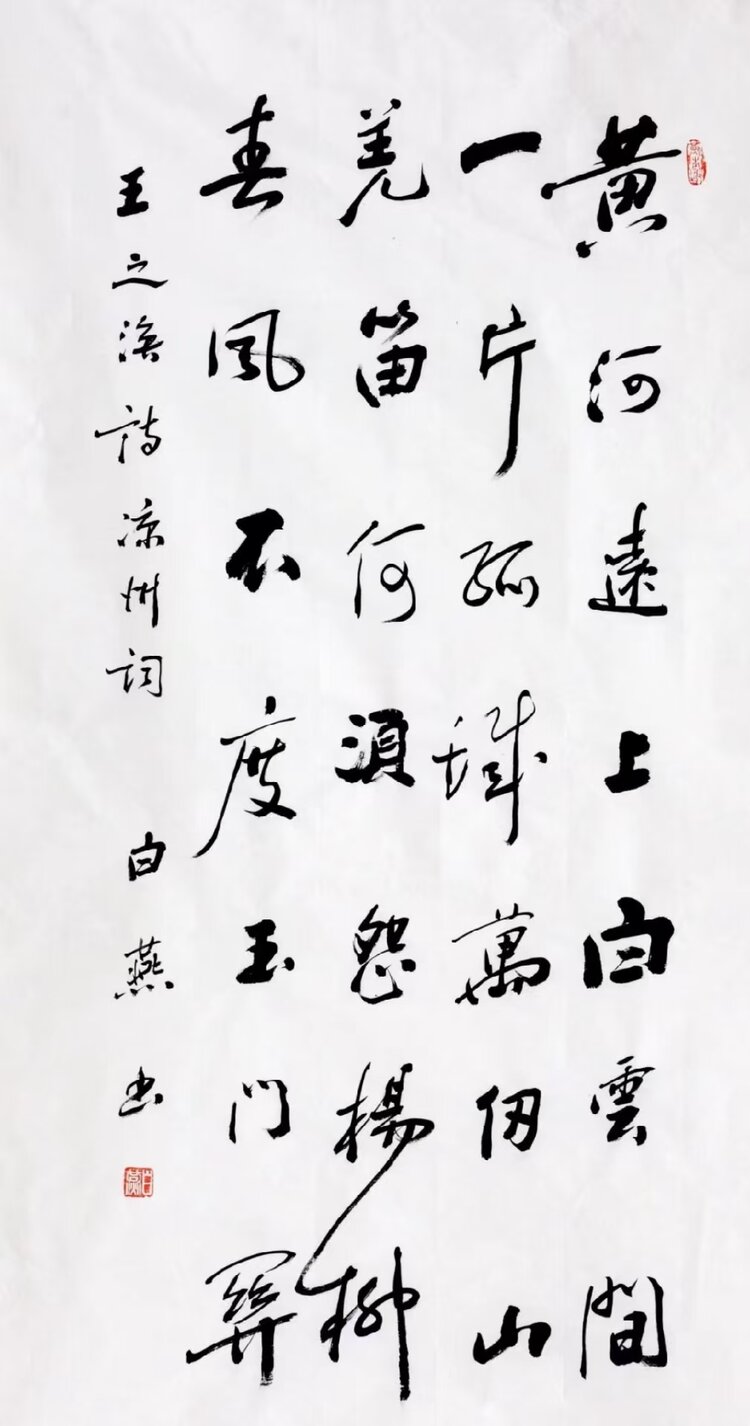 黄河遠上白雲間
一片孤城萬仞山
羌笛何須怨楊柳
春風不度玉門關
王之渙詩涼州词
白燕書